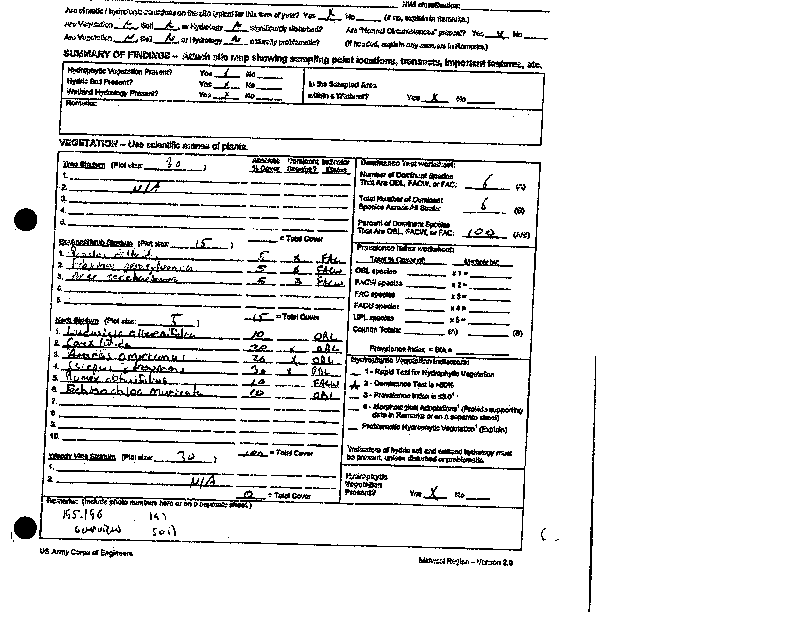 Are climatic / hydrologic conditions on the site typical for this time of year? Yes X No (If no, explain in Remarks.)
Are Vegetation N, Soil N, or Hydrology N significantly disturbed? Are "Normal Circumstances" present? Yes X No
Are Vegetation N, Soil N, or Hydrology N naturally problematic? (If needed, explain any answers in Remarks.)
SUMMARY OF FINDINGS – Attach site map showing sampling point locations, transects, important features, etc.
Hydrophytic Vegetation Present? Yes X No
Hydric Soil Present? Yes X No
Wetland Hydrology Present? Yes X No
Is the Sampled Area
within a Wetland? Yes X No
Remarks:
VEGETATION – Use scientific names of plants.
Tree Stratum (Plot size: 30 ) Absolute % Cover Dominant Species? Indicator Status
1.
2. N/A
3.
4.
5.
= Total Cover
Sapling/Shrub Stratum (Plot size: 15 )
1. 5 X FAC
2. 5 X FACW
3. 5 FACW
4.
5.
15 = Total Cover
Herb Stratum (Plot size: 5 )
1. Ludwigia alternifolia 10 OBL
2. Carex 20 X OBL
3. americanus 20 X OBL
4. Scirpus 30 X OBL
5. Rumex obtusifolius 10 FACW
6. Echinochloa muricata 10 OBL
7.
8.
9.
10.
100 = Total Cover
Woody Vine Stratum (Plot size: 30 )
1.
2. N/A
0 = Total Cover
Dominance Test worksheet:
Number of Dominant Species
That Are OBL, FACW, or FAC: 6 (A)
Total Number of Dominant
Species Across All Strata: 6 (B)
Percent of Dominant Species
That Are OBL, FACW, or FAC: 100 (A/B)
Prevalence Index worksheet:
Total % Cover of: Multiply by:
OBL species x 1 =
FACW species x 2 =
FAC species x 3 =
FACU species x 4 =
UPL species x 5 =
Column Totals: (A) (B)
Prevalence Index = B/A =
Hydrophytic Vegetation Indicators:
1 - Rapid Test for Hydrophytic Vegetation
X 2 - Dominance Test is >50%
3 - Prevalence Index is ≤3.0¹
4 - Morphological Adaptations¹ (Provide supporting
data in Remarks or on a separate sheet)
Problematic Hydrophytic Vegetation¹ (Explain)
¹Indicators of hydric soil and wetland hydrology must
be present, unless disturbed or problematic.
Hydrophytic
Vegetation
Present? Yes X No
Remarks: (Include photo numbers here or on a separate sheet.)
195-196 197
overview soil
US Army Corps of Engineers
Midwest Region – Version 2.0